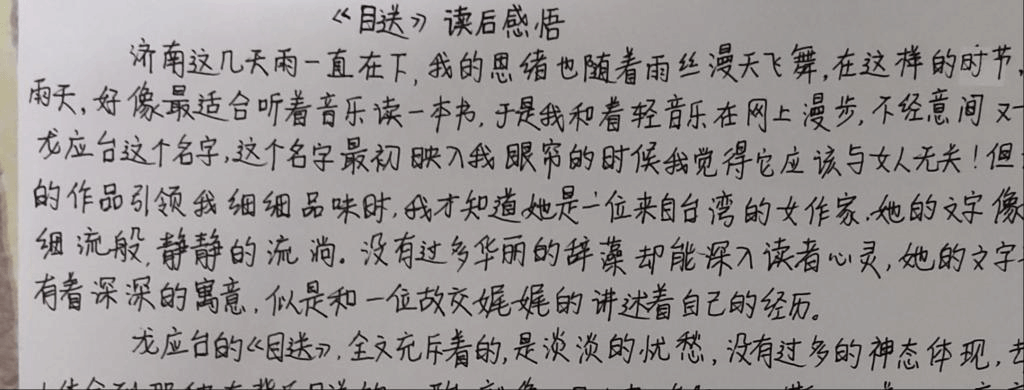 《目送》读后感悟
济南这几天雨一直在下,我的思绪也随着雨丝漫天飞舞,在这样的时节,
雨天,好像最适合听着音乐读一本书,于是我和着轻音乐在网上漫步,不经意间又一
龙应台这个名字,这个名字最初映入我眼帘的时候我觉得它应该与女人无关!但
的作品引领我细细品味时,我才知道她是一位来自台湾的女作家.她的文字像
细流般,静静的流淌。没有过多华丽的辞藻却能深入读者心灵,她的文字
有着深深的寓意,似是和一位故交娓娓的讲述着自己的经历。
龙应台的《目送》,全文充斥着的,是淡淡的忧愁,没有过多的神态体现,去